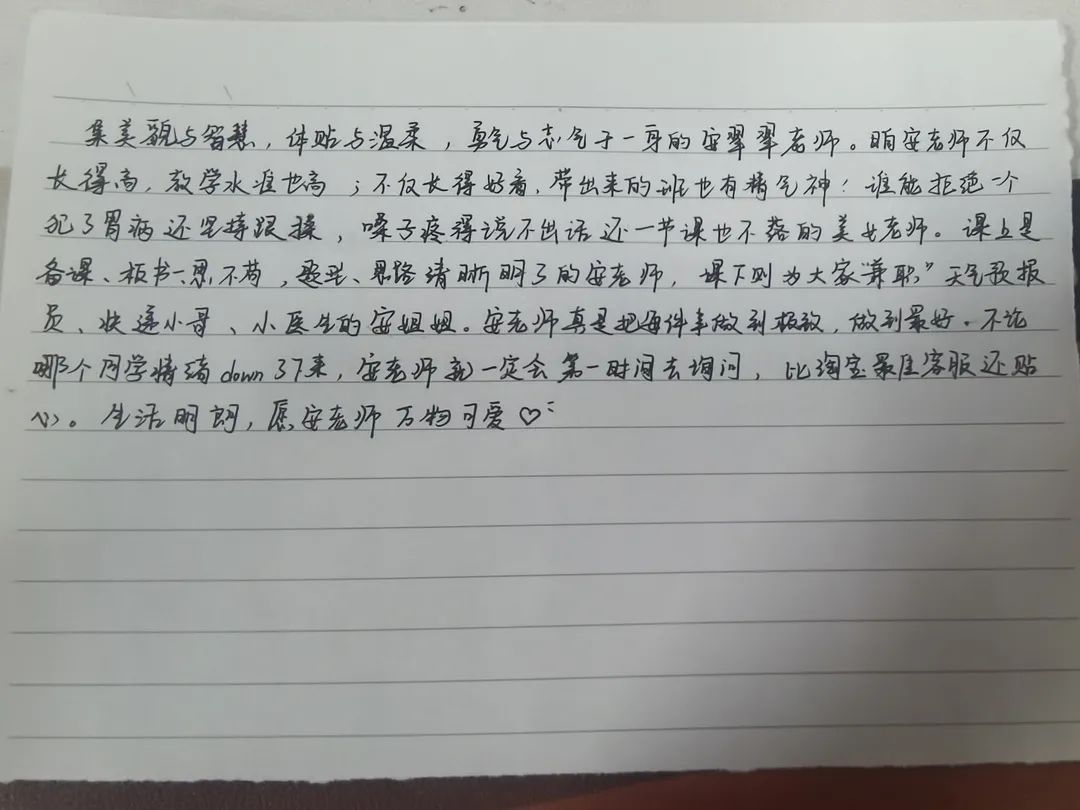 集美貌与智慧，体贴与温柔，勇气与志气于一身的安翠翠老师。咱安老师不仅
长得高，教学水准也高；不仅长得好看，带出来的班也有精气神！谁能拒绝一个
犯了胃病还坚持跟操，嗓子疼得说不出话还一节课也不落的美女老师。课上是
备课、板书一丝不苟，题型、思路清晰明了的安老师，课下则为大家"兼职"天气预报
员、快递小哥、小医生的安姐姐。安老师真是把每件事做到极致，做到最好。不论
哪个同学情绪down了下来，安老师就一定会第一时间去询问，比淘宝最佳客服还贴
心。生活明朗，愿安老师万物可爱♡